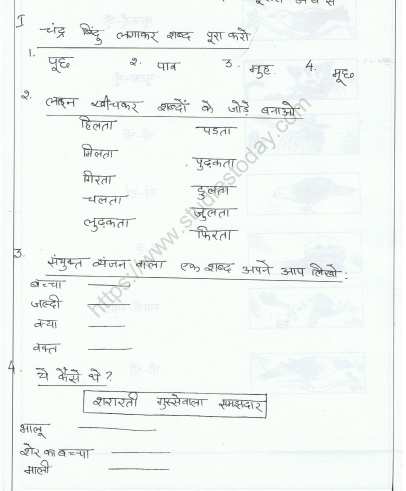 I चंद्र बिंदु लगाकर शब्द पूरा करो
1. पूछ 2. पाव 3. मुह 4. मूछ
२. लाइन खींचकर शब्दों के जोड़े बनाओ
हिलता पडता
मिलता पुदकता
गिरता डुलता
चलता जुलता
लुढ़कता फिरता
3. संयुक्त व्यंजन वाला एक शब्द अपने आप लिखो:
बच्चा
जल्दी
क्या
वक्त
4. ये कैंसे थे?
शरारती गुस्सेवाला समझदार
भालू
शेर का बच्चा
माली
https://www.studiestoday.com